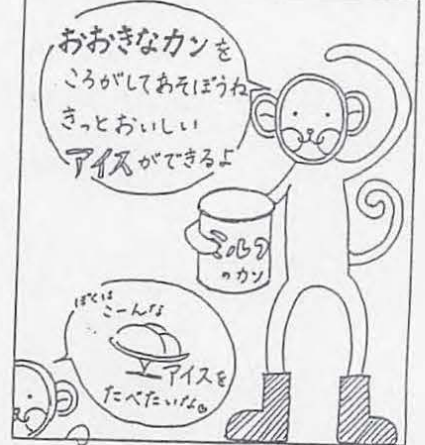 おおきなカンを
ころがしてあそぼうね
きっとおいしい
アイスができるよ
ミルク
のカン
ぼくは
こーんな
アイスを
たべたいな。